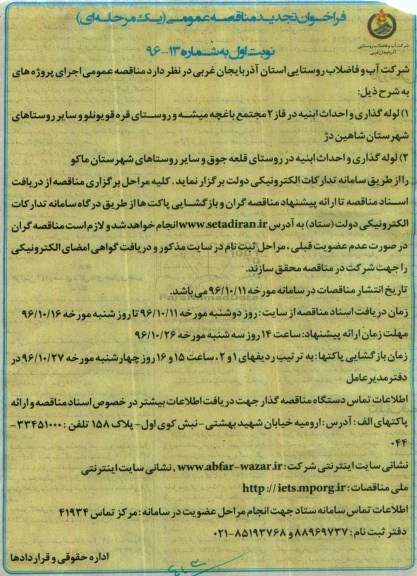 فراخوان تجدید مناقصه عمومی (یک مرحله‌ای)
نوبت اول به شماره ۱۳-۹۶
شرکت آب و فاضلاب روستایی
آذربایجان غربی
شرکت آب و فاضلاب روستایی استان آذربایجان غربی در نظر دارد مناقصه عمومی اجرای پروژه های
به شرح ذیل:
۱) لوله گذاری و احداث ابنیه در فاز ۲ مجتمع باغچه میشه و روستای قره قویونلو و سایر روستاهای
شهرستان شاهین دژ
۲) لوله گذاری و احداث ابنیه در روستای قلعه جوق و سایر روستاهای شهرستان ماکو
را از طریق سامانه تدارکات الکترونیکی دولت برگزار نماید. کلیه مراحل برگزاری مناقصه از دریافت
اسناد مناقصه تا ارائه پیشنهاد مناقصه گران و بازگشایی پاکت ها از طریق درگاه سامانه تدارکات
الکترونیکی دولت (ستاد) به آدرس www.setadiran.ir انجام خواهد شد و لازم است مناقصه گران
در صورت عدم عضویت قبلی، مراحل ثبت نام در سایت مذکور و دریافت گواهی امضای الکترونیکی
را جهت شرکت در مناقصه محقق سازند.
تاریخ انتشار مناقصات در سامانه مورخه ۹۶/۱۰/۱۱ می باشد.
زمان دریافت اسناد مناقصه از سایت: روز دوشنبه مورخه ۹۶/۱۰/۱۱ تا روز شنبه مورخه ۹۶/۱۰/۱۶
مهلت زمان ارائه پیشنهاد: ساعت ۱۴ روز سه شنبه مورخه ۹۶/۱۰/۲۶
زمان بازگشایی پاکتها: به ترتیب ردیفهای ۱ و ۲، ساعت ۱۵ و ۱۶ روز چهارشنبه مورخه ۹۶/۱۰/۲۷ در
دفتر مدیرعامل
اطلاعات تماس دستگاه مناقصه گذار جهت دریافت اطلاعات بیشتر در خصوص اسناد مناقصه و ارائه
پاکتهای الف: آدرس: ارومیه خیابان شهید بهشتی - نبش کوی اول - پلاک ۱۵۸ تلفن: ۳۳۴۵۱۰۰۰-
۰۴۴
نشانی سایت اینترنتی شرکت: www.abfar-wazar.ir، نشانی سایت اینترنتی
ملی مناقصات: http://iets.mporg.ir
اطلاعات تماس سامانه ستاد جهت انجام مراحل عضویت در سامانه: مرکز تماس ۴۱۹۳۴
دفتر ثبت نام: ۸۸۹۶۹۷۳۷ و ۸۵۱۹۳۷۶۸-۰۲۱
اداره حقوقی و قراردادها